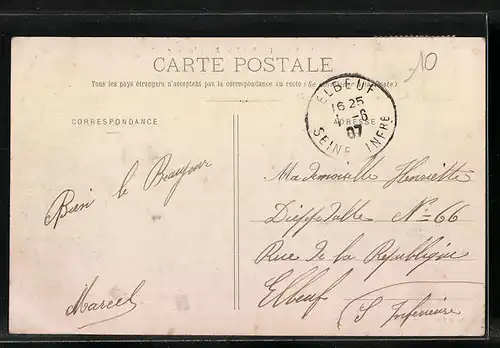 10
CARTE POSTALE
Tous les pays étrangers n'acceptent pas la correspondance au recto (Se à la Poste)
CORRESPONDANCE
ADRESSE
ELBEUF
16 25
4 - 6
07
SEINE INFRE
Bien le Bonjour
Marcel
Mademoiselle Henriette
Dieppedalle N = 66
Rue de la République
Elbeuf
S Inférieure